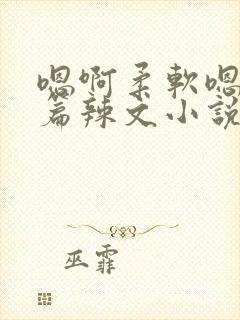 嗯啊柔軟嗯
篇辣文小說
巫霏